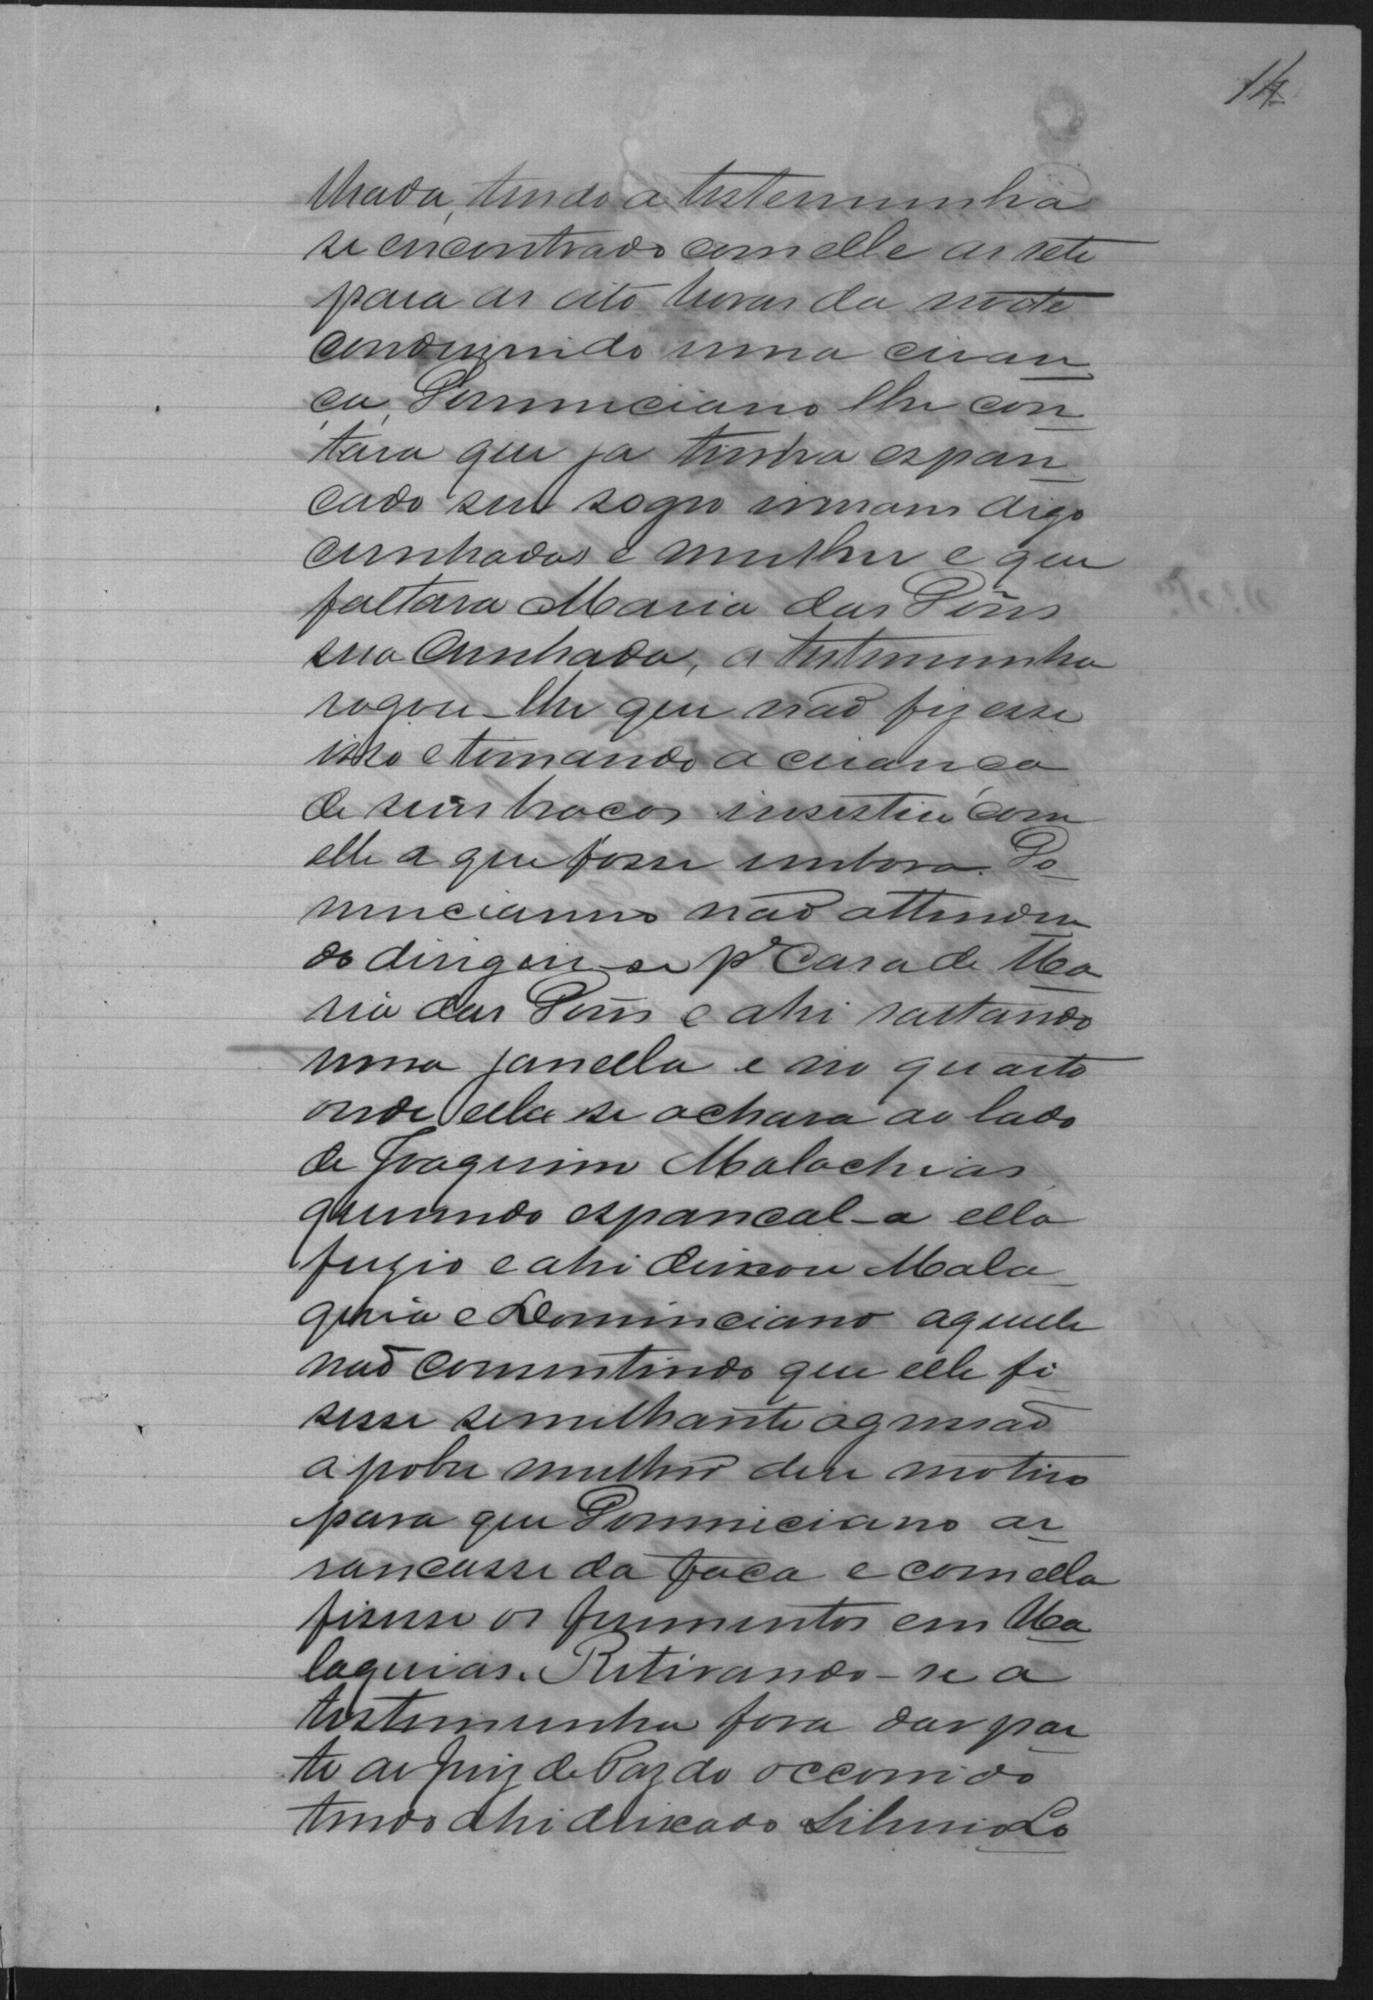 14
lhada, tendo a testemunha
se encontrado com elle as sete
para as oito horas da noite
conduzindo uma crian
ça, Dominiciano lhe con
tara que ja tinha espan
cado seu sogro irmans digo
cunhados e mulher e que
faltara Maria das Dôres
sua cunhada, a testemunha
rogou-lhe que não fizesse
isso e tomando a criança
de seus braços insestiu com
elle a que fosse embora. Do
miniciano não attenden
do dirigiu-se pª Casa de Ma
ria das Dores e ahi saltando
uma janella e no quarto
onde ella se achava ao lado
de Joaquim Malachias
querendo espancal-a ella
fugio e ahi deixou Mala
quia e Dominciano aquelle
não consentindo que elle fi
sesse semilhante agressão
a pobre mulher deu motivo
para que Dominiciano ar
rancasse da faca e com ella
fisesse os ferimentos em Ma
laquias. Retirando-se a
testemunha fora dar par
te ao Juiz de Paz do occorrido
tendo ahi deixado Silverio Lo